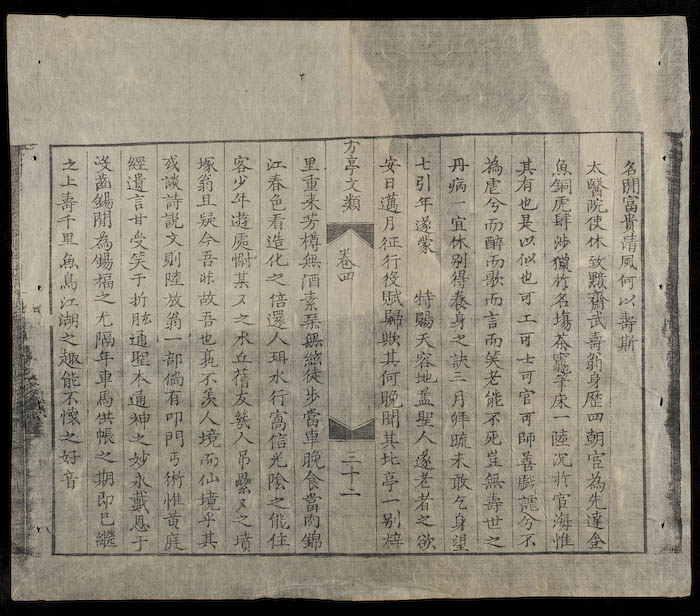 名閒富貴清風何以壽斯
太醫院使休致黙齋武壽翁身歷四朝宮為先達金
魚銅虎肆涉獵於名塲茶竈筆床一陸沉於宦海惟
其有也是以似也可工可士可官可師善戲謔兮不
為虐兮而醉而歌而言而笑老能不死豈無壽世之
丹病一宜休别得養身之訣三月拜疏未敢乞身望
七引年遂蒙 特賜天容地盖聖人遂老者之欲
安日邁月征行役賦歸歟其何晚閒其北亭一别梓
方亭文類 卷四 三十二
里重来芳樽無酒素琹無絃徒步當車晚食當肉錦
江春色看造化之倍還人珥水行窩信光陰之能住
客少年遊處惻某又之水丘舊友幾人吊纍又之墳
塚翁且疑今吾昧故吾也竟不羡人境而仙境乎其
或談詩説文則陸放翁一部倘有叩門丐術惟黄庭
經遺言甘受笑于折肱通聖本通神之妙永戴恩于
没齒錫閒為錫福之尤隔年車馬供帳之期即已繼
之上壽千里魚鳥江湖之趣能不懐之好音